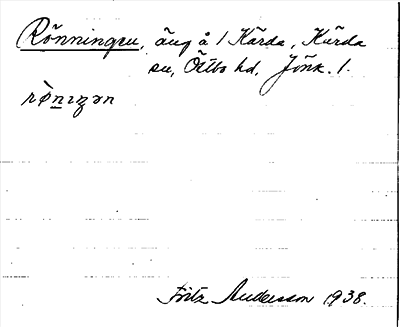 Rönningen, äng å 1 Kärda, Kärda
sn, Östbo hd, Jönk. l.
rø̀nɪŋən
Fritz Andersson 1938.